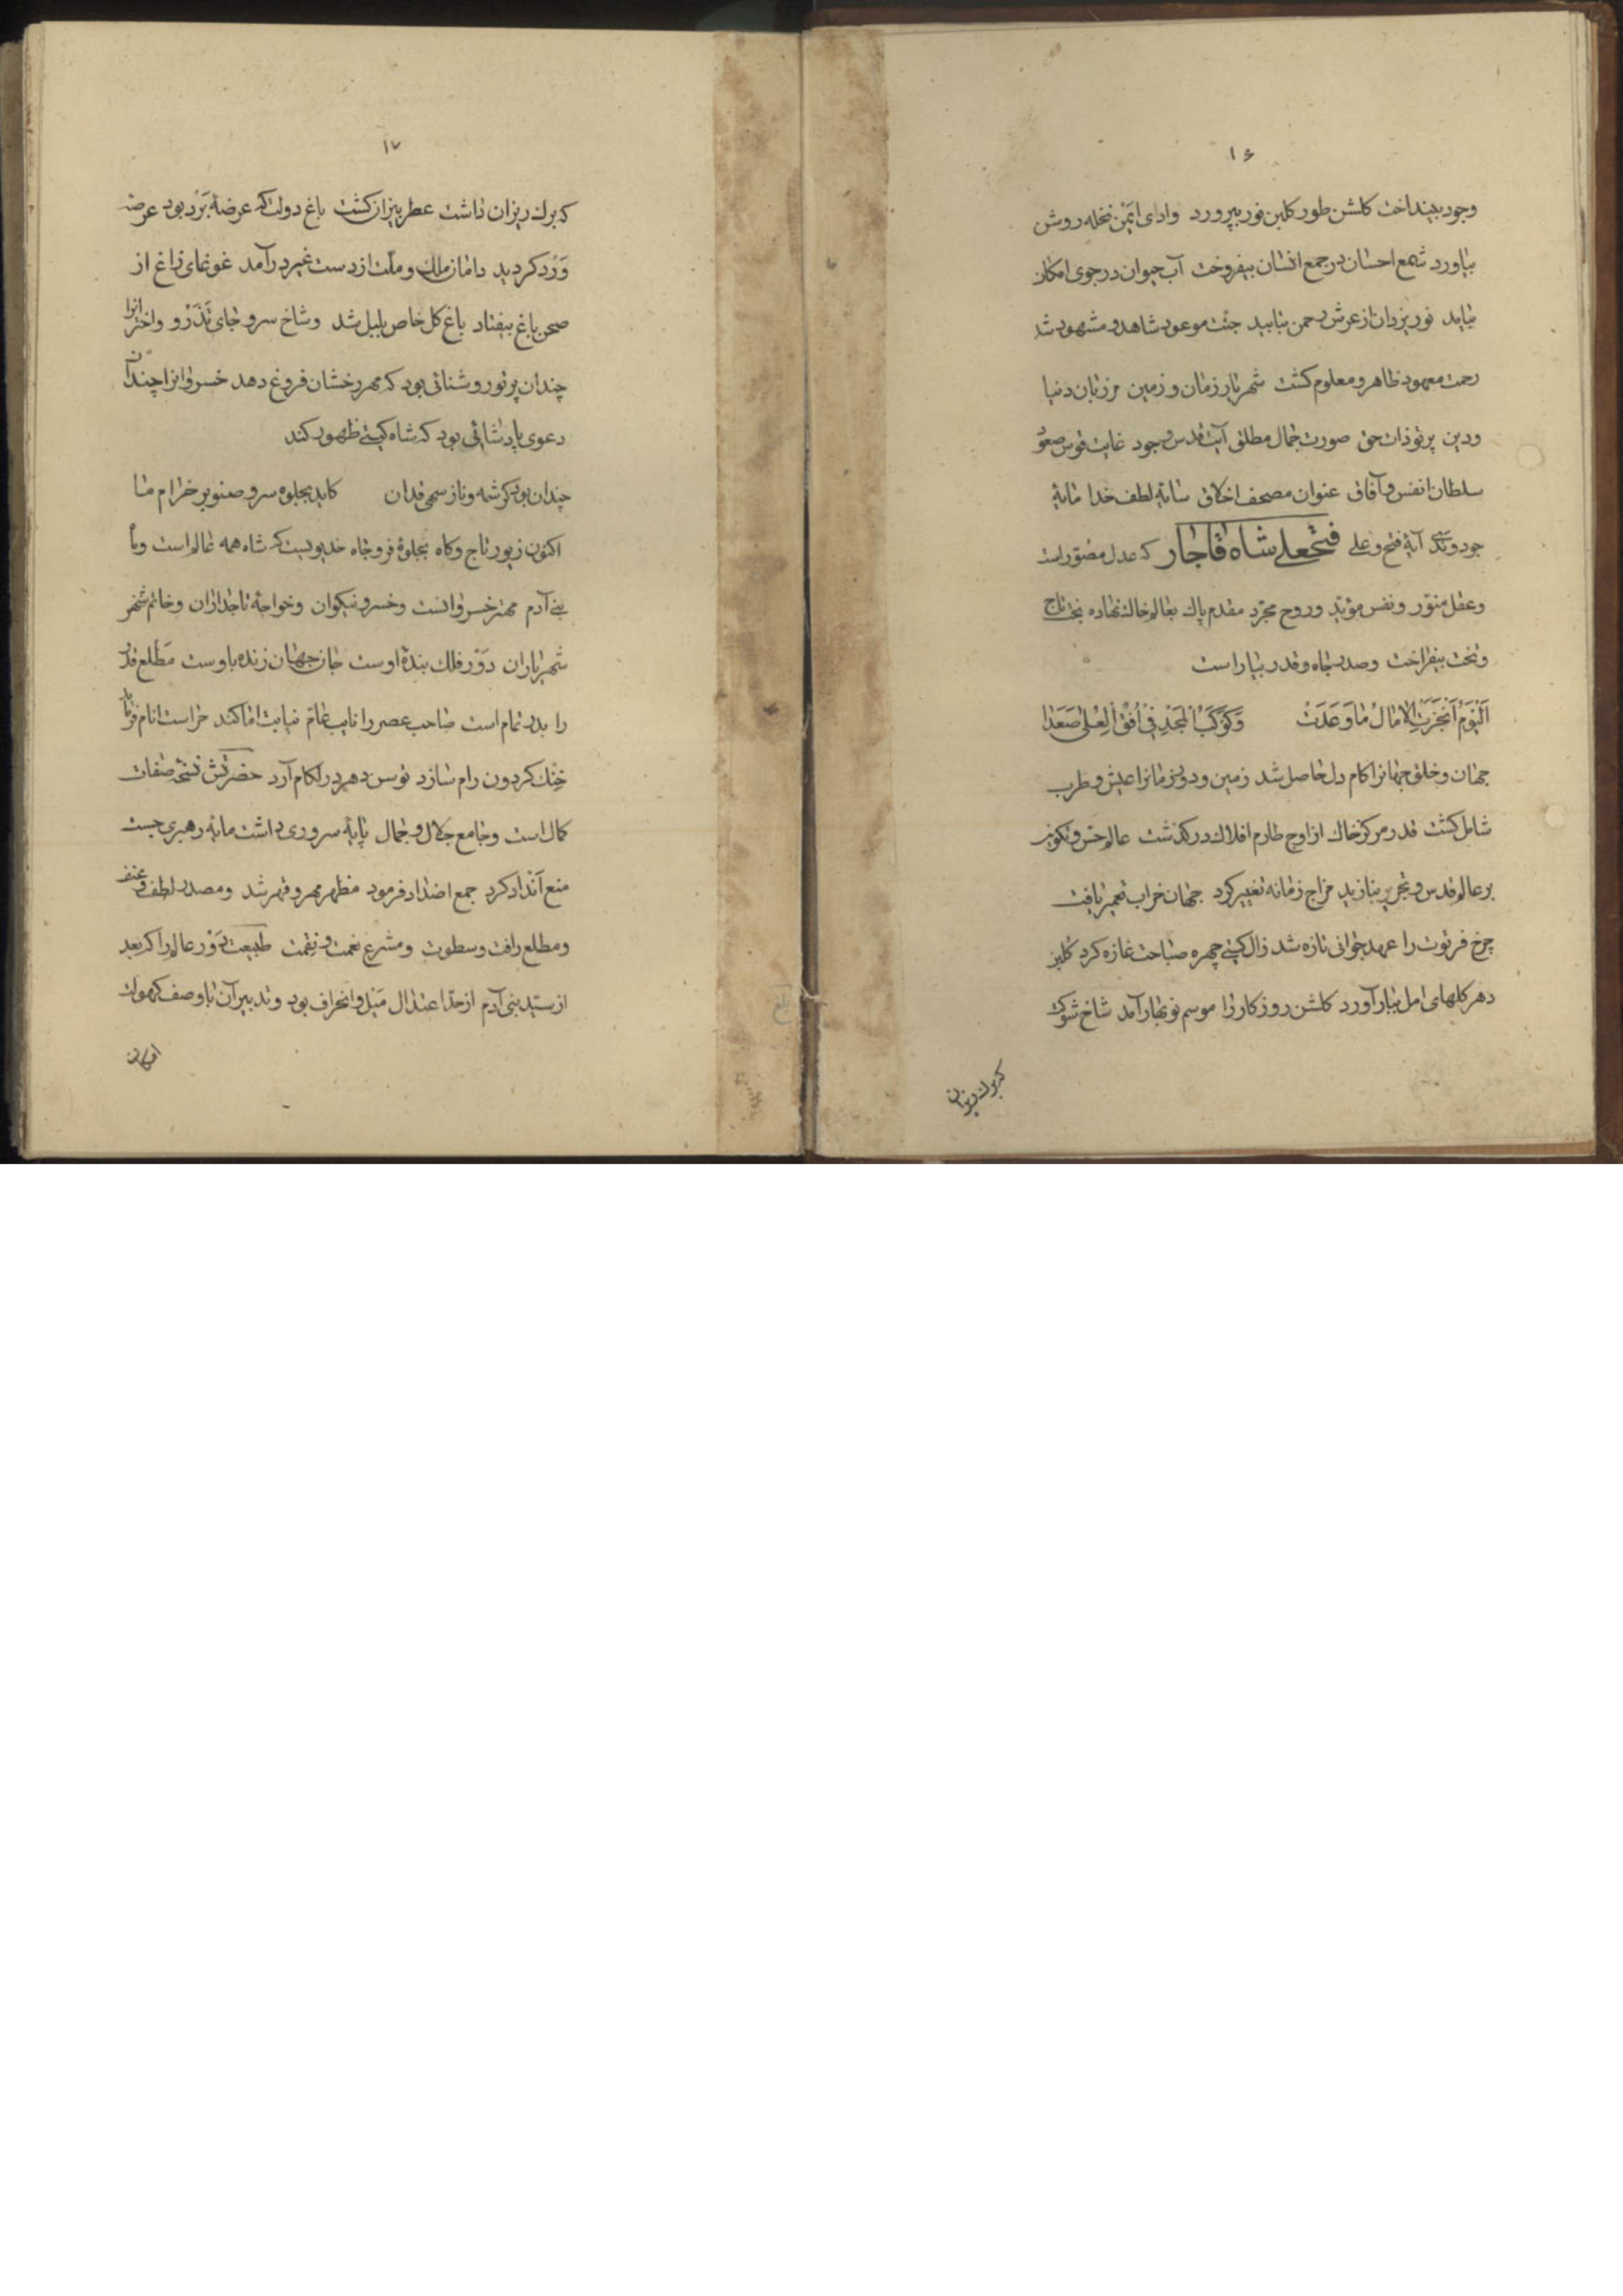 ۱۶
وجود بینداخت کلشن طور کلبن نور بپرورد وادی ایمن نخله روشن
بیاورد شمع احسان در جمع انسان بیفروخت آب حیوان در جوی امکان
بیامد نور یزدان از عرش رحمن بتابید جنت موعود شاهد و مشهود شد
رحمت معهود ظاهر و معلوم کشت شهریار زمان و زمین مرزبان دنیا
و دین پرتو ذات حق صورت جمال مطلق آیت قدس وجود غایت قوس صعود
سلطان انفس و آفاق عنوان مصحف اخلاق سایهٔ لطف خدا مایهٔ
جود و آیهٔ فتح و علی فتحعلی شاه قاجار که عدل مصوّر است
و عقل منوّر و نفس مؤید و روح مجرّد مقدم پاک بعالم خاک نهاده تاج
و تخت بیفراخت و صدر جاه و قدر بیاراست
اَلْیَوْمَ اَنْجَزَتِ الْاٰمَالُ مَا وَعَدَتْ وَکَوْکَبُ الْمَجْدِ فِی اُفْقِ الْعُلٰی صَعَدَا
جهان و خلق جهانرا کام دل حاصل شد زمین و دور زمانرا عیش و طرب
شامل کشت قدر مرکز خاک از اوج طارم افلاک درکذشت عالم حس و تکوین
بر عالم قدس و تجرید بنازید مزاج زمانه تغییر کرد جهان خراب تعمیر یافت
چرخ فرتوت را عهد جوانی تازه شد زال کیتی چهره صباحت غازه کرد کلبن
دهر کلهای امل ببار آورد کلشن روزکار را موسم نوبهار آمد شاخ شوکت
که برک ریزان
۱۷
که برک ریزان داشت عطر بیزان کشت باغ دولت که عرضهٔ بَرْد بود عرضه
وَرْد کردید دامان ملک و ملّت از دست غیر درآمد غوغای زاغ از
صحن باغ بیفتاد باغ کل خاص بلبل شد و شاخ سرو جای تَذَرْو و اخترانرا
چندان پرتو روشنائی بود که مهر رخشان فروغ دهد خسروانرا چندان
دعوی پادشائی بود که شاه کیتی ظهور کند
چندان بود کرشمه و ناز سهی قدان کاید بجلوه سرو صنوبر خرام ما
اکنون زیور تاج و کاه بجلوهٔ فر و جاه خدیویست که شاه همه عالم است و
بنی آدم مهتر خسروانست و خسرو نیکوان و خواجهٔ تاجداران و خاتم
شهریاران دَوْر فلک بندهٔ اوست جان جهان زنده باوست مَطْلع قدر
را بدر تمام است صاحب عصر را نایب عام نیابت امام کند حراست انام فرماید
خِنْک کردون رام سازد توسن دهر در لکام آرد حضرتش نسخهٔ صفات
کمال است و جامع جلال و جمال پایهٔ سروری داشت مایهٔ رهبری جست
منع اَنْداد کرد جمع اضداد فرمود مظهر مهر و قهر شد و مصدر لطف و عنف
و مطلع رافت و سطوت و مشرع نعمت و نقمت طبیعت دَوْر عالم را که بعد
از سید بنی آدم از حدّ اعتدال مَیْل و انحراف بود و تدبیر آن با وصف کهولت